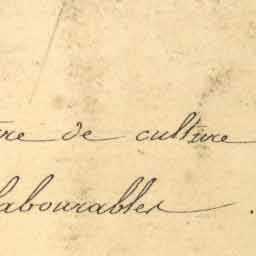 re de culture
labourables .